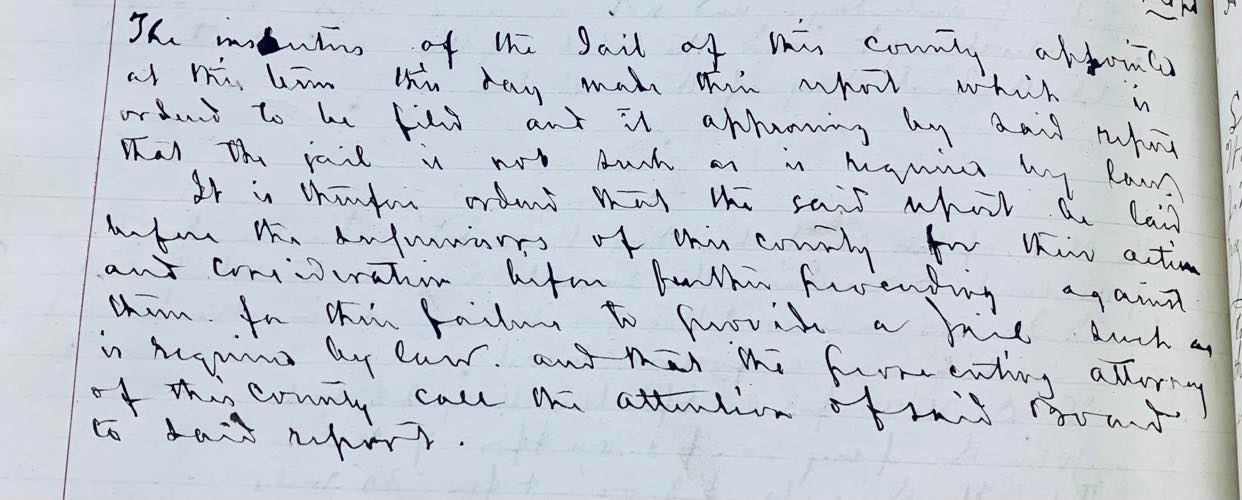 The inspectors of the Jail of this county appointed
at this term this day made their report which is
ordered to be filed and it appearing by said report
that the jail is not such as is required by law.
It is therefore ordered that the said report be laid
before the supervisors of this county for their action
and consideration before further proceeding against
them for their failure to provide a jail such as
is required by law. and that the prosecuting attorney
of this County call the attention of said Board
to said report.